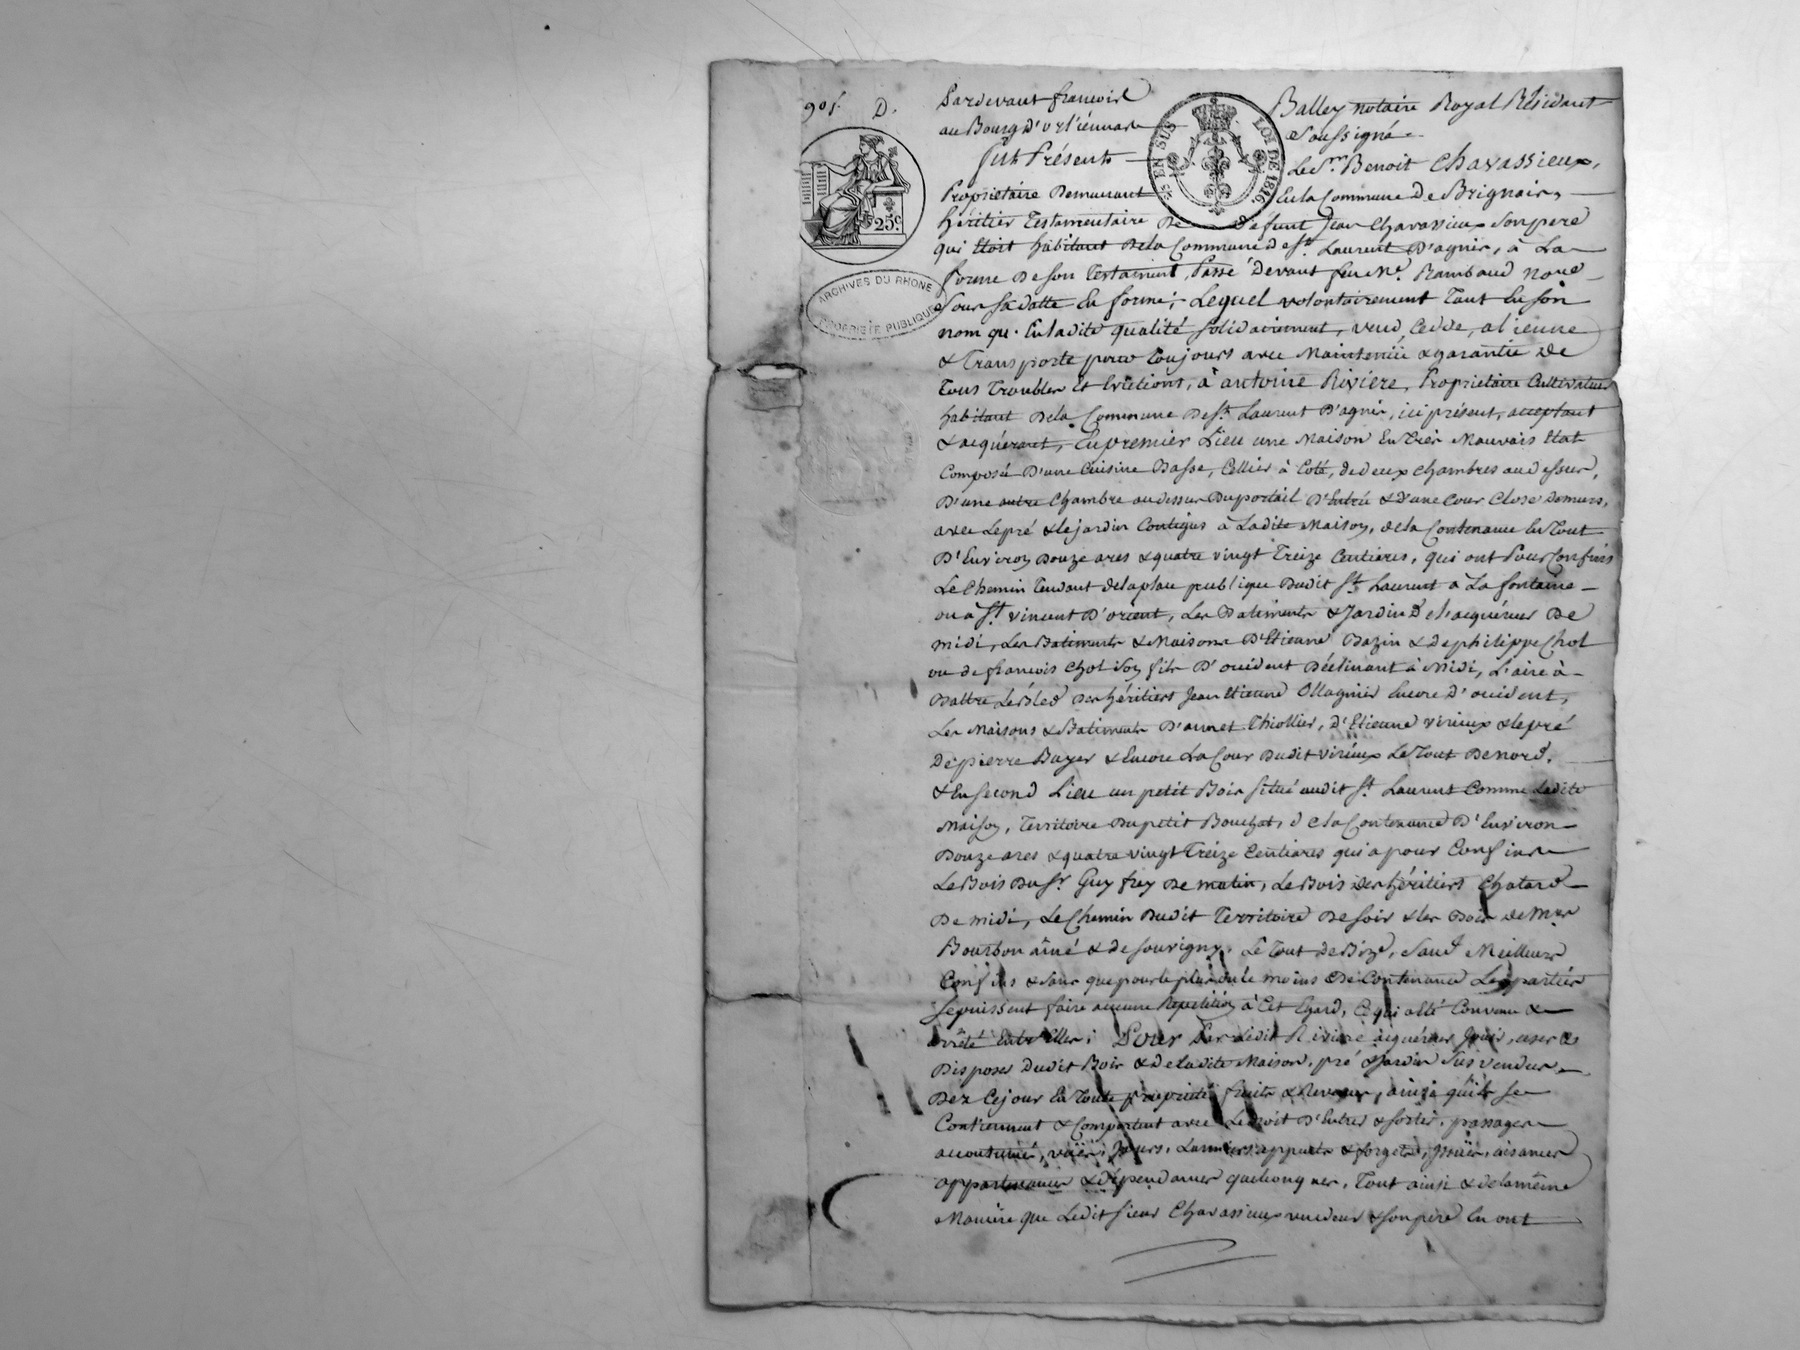 905. D.
Pardevant françois Balley notaire Royal Résidant
au Bourg d'orliénnas Soussigné.
fut Présent
Le Sr. Benoit Chavassieux,
Proprietaire Demeurant En la Commune De Brignais,
héritier Testamentaire De défunt Jean Chavassieux Son pere
qui Etoit habitant De la Commune de St. Laurent D'agnis, à La
forme De Son Testament, Passé Devant feu Me. Rambaud Nore
Sous Sa Datte En forme; Lequel volontairement Tant En Son
nom qu'En ladite qualité Solidairement, vend, Cedde, alienne
& Transporte pour Toujours avec Maintenüe & garantie De
Tous Troubles Et Evictions, à antoine Riviere, Proprietaire Cultivateur
habitant De la Commune De St. Laurent D'agnis, ici présent, acceptant
& acquérant, En premier Lieu une Maison En très Mauvais Etat
Composée D'une Cuisine Basse, Cellier à Coté, de deux Chambres au dessus,
D'une autre Chambre au dessus Du portail D'Entrée & D'une Cour Close de murs,
avec Le pré & le jardin Contigus à Ladite Maison, de la Contenance En Tout
D'Environ Douze ares & quatre vingt Treize Centiares, qui ont Pour Confins
Le Chemin Tendant de la place publique Dudit St. Laurent à La fontaine
ou à St. vincent D'orient, Les Batiments & Jardin De l'acquéreur De
midi, Les Batiments & Maisons D'Etienne Bazin & De philippe Chol
ou de françois Chol Son fils D'occident Déclinant à Midi, L'aire à
Battre Les Bled Des héritiers Jean Etienne Ollagnier Encore D'occident,
Les Maisons & Batiments D'annet Thiollier, D'Etienne virieux & le pré
De pierre Buyer & Encore La Cour Dudit virieux Le Tout De nord.
& En Second Lieu un petit Bois Situé audit St. Laurent Comme Ladite
Maison, Territoire Du petit Bouchat, de la Contenance D'Environ
Douze ares & quatre vingt Treize Centiares qui a pour Confins
Le Bois Du Sr. Guy frey De matin, Le Bois Des héritiers Chatard
De midi, Le Chemin Dudit Territoire De Soir & les Bois de Mrs
Bourbon aîné & de Souvigny, Le Tout de Bize, Sauf Meilleurs
Confins & Sans que pour le plus ou le moins De Contenance Les parties
Se puissent faire aucune Répétition à Cet Egard, Ce qui a été Convenu &
arrêté Entr'Elles; Pour Par Ledit Riviere acquéreur Jouir, user &
Disposer Dudit Bois & de Ladite Maison, pré & Jardin Sus vendus,
Dez Ce jour En Toute propriété fruits & Revenus, ainsi qu'ils Se
Contiennent & Comportent avec Le Droit D'Entrer & Sortir, passages
accoutumés, vües, Jours, appuis & forgets, aisances
appartenances & dépendances quelconques, Tout ainsi & de la même
Maniere que Ledit Sieur Chavassieux vendeur & Son pere En ont
25c.
EN SUS
LOI DE 1816.
ARCHIVES DU RHONE
PROPRIÉTÉ PUBLIQUE